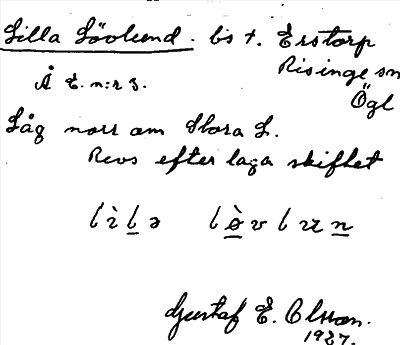 Lilla Lövlund. bs t. Erstorp
Risinge sn
Å E. n:r 3.
Ögl
Låg norr om Stora L.
Revs efter laga skiftet
lìlə lòvlun
Gustaf E. Olsson.
1927.